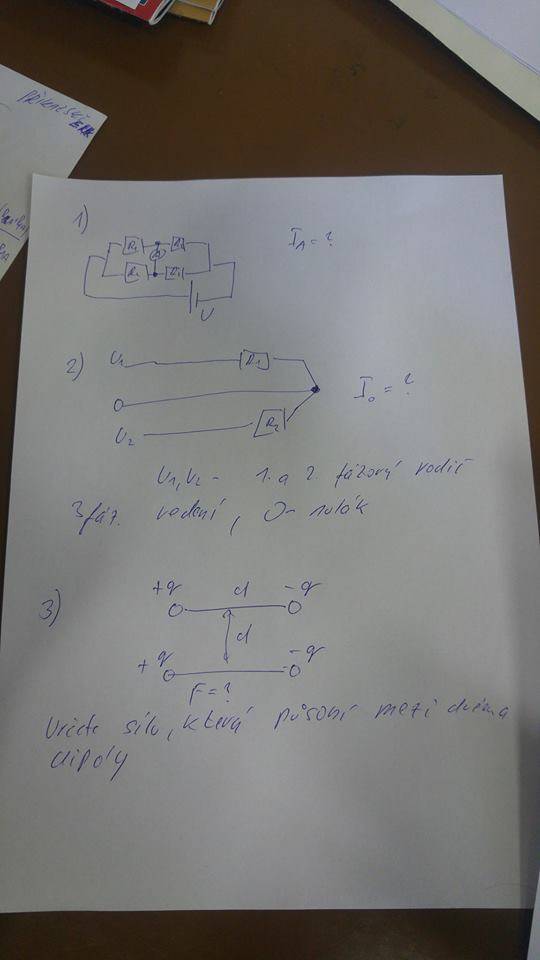 PŘÍKLADSKÝ
1)
I_A = ?
R₁
A
U
2)
U₁
R₁
O
I₀ = ?
U₂
R₂
U₁, U₂ - 1. a 2. fázový vodič
3 fáz. vedení, O - nulák
3)
+q d -q
d
+q -q
F = ?
Určete sílu, která působí mezi dvěma
dipóly